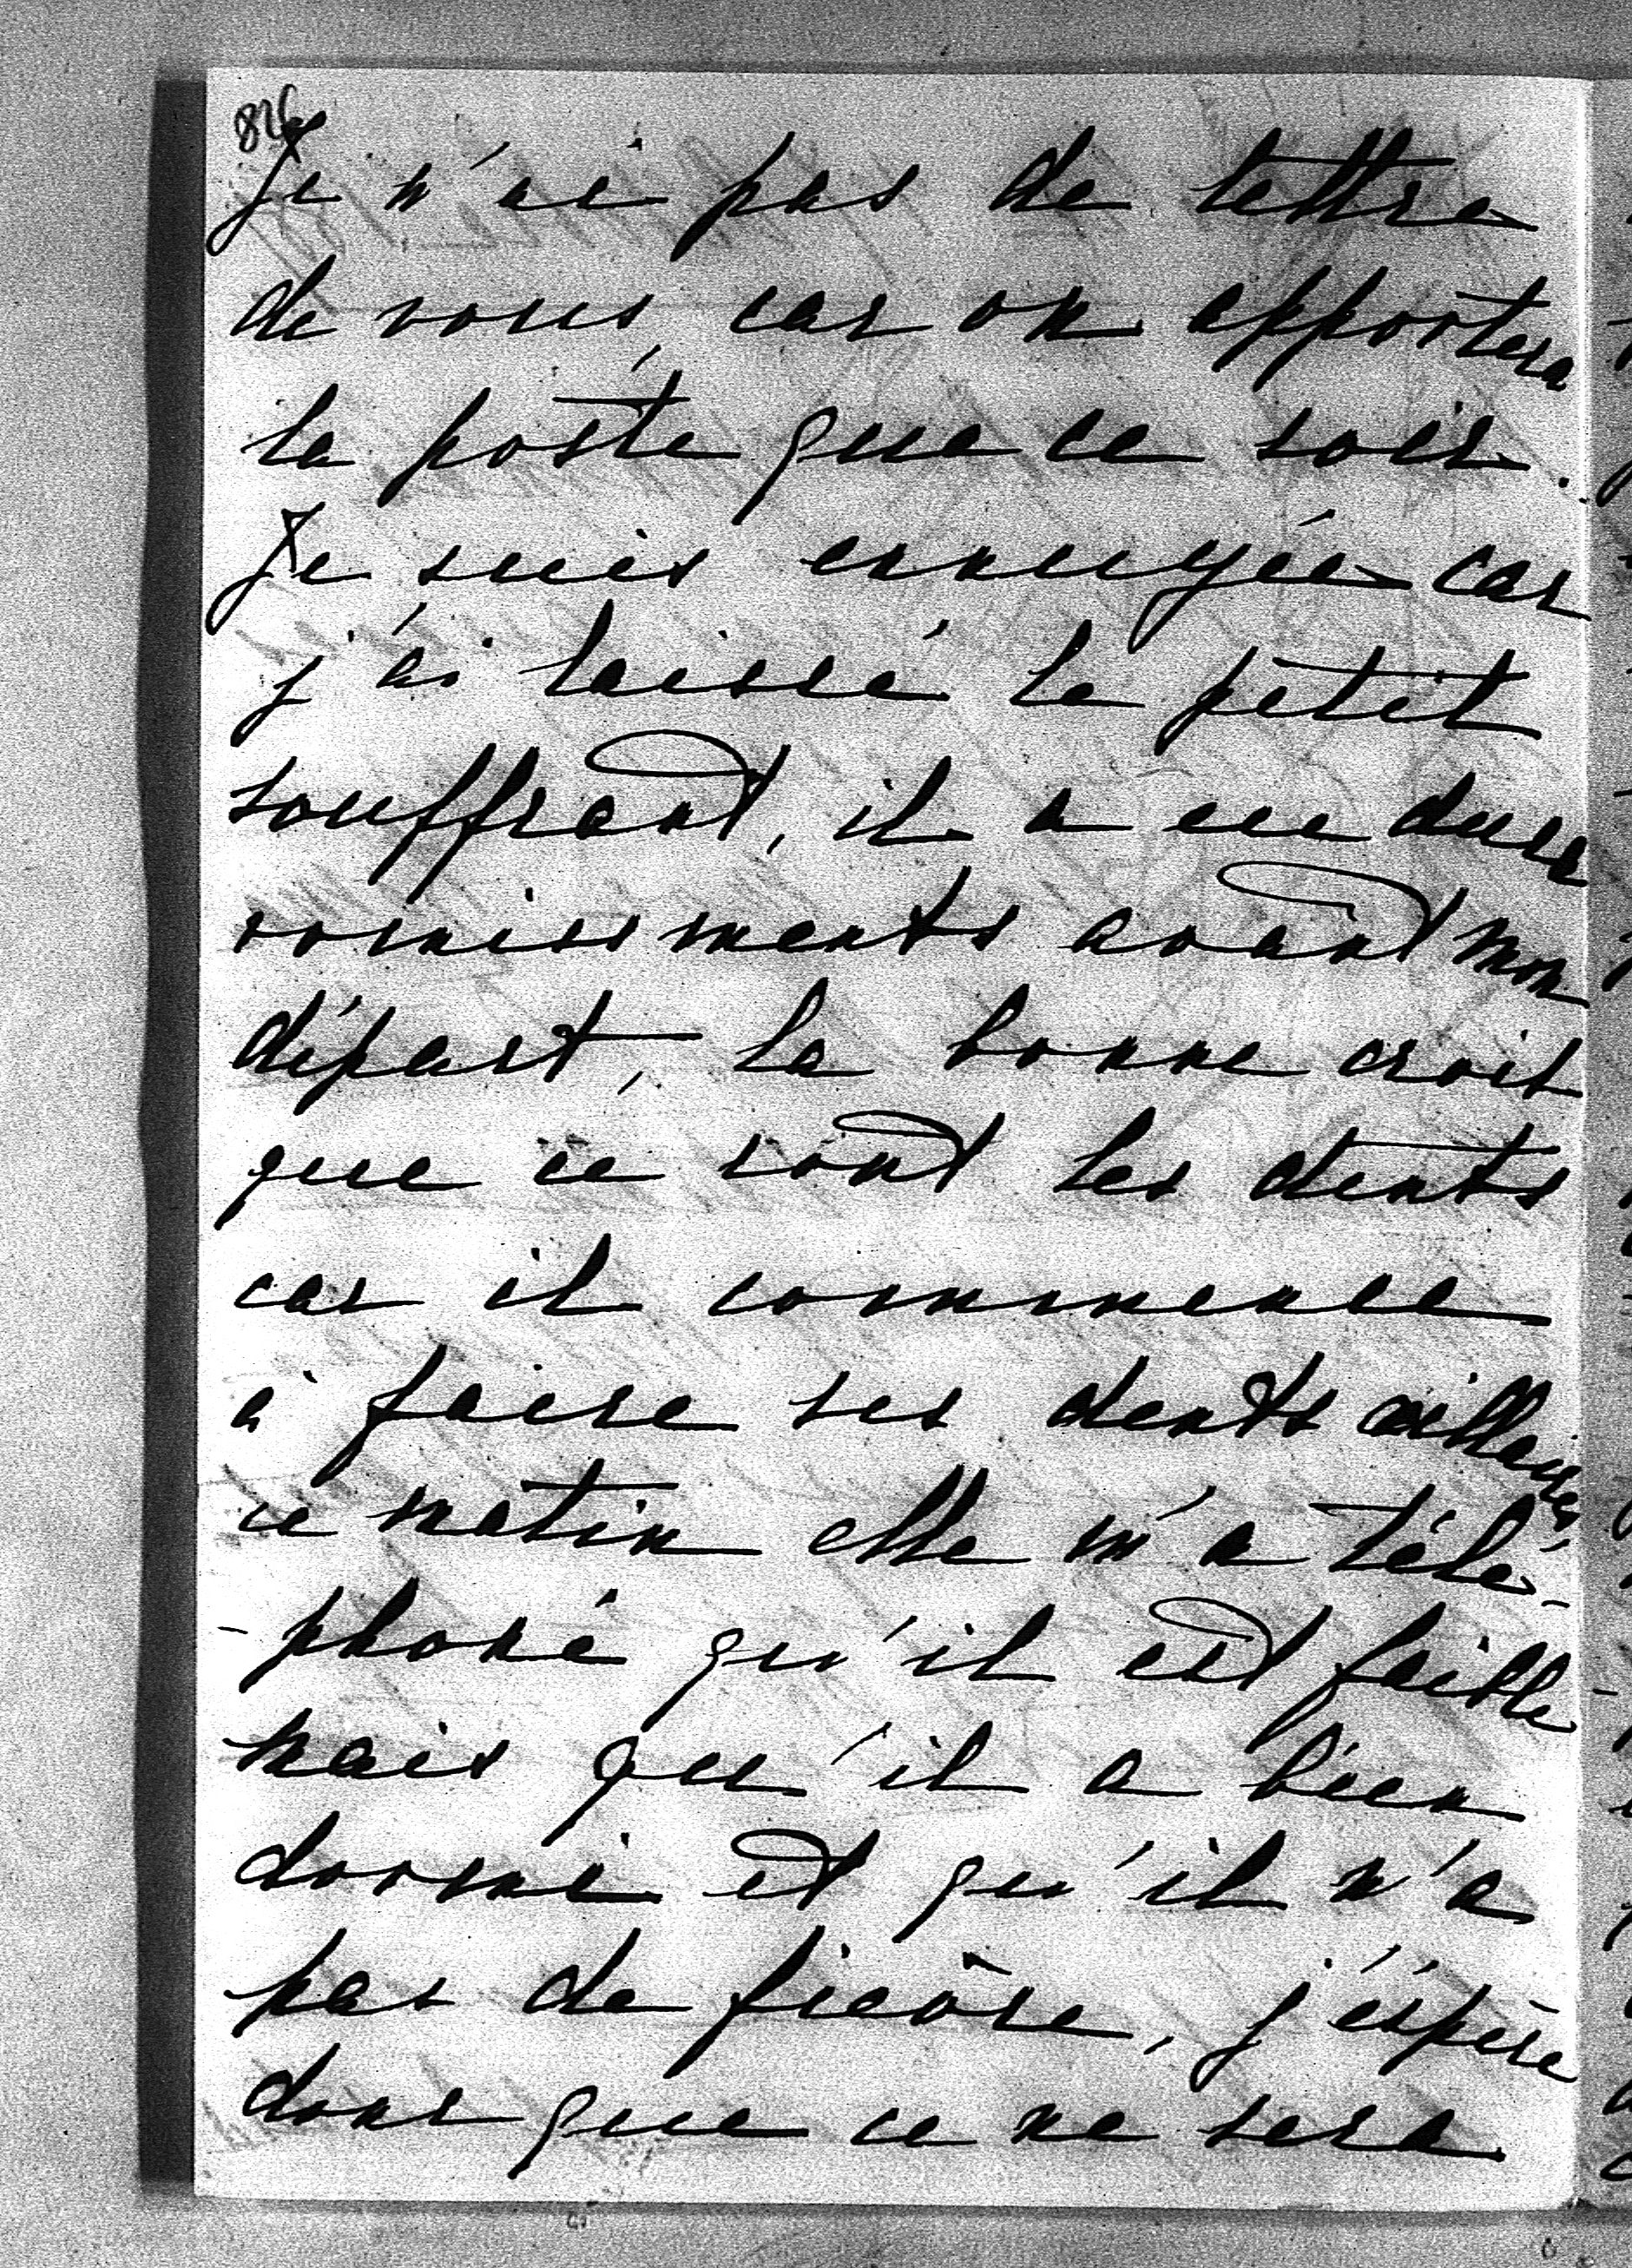 826
Je n'ai pas de lettre
de vous, car on apportera
la poste que ce soir.
Je suis ennuyée car
j'ai laissé le petit
souffrant, il a eu deux
vomissments avant mon
départ, la bonne croit
que ce sont les dents
car il commence
à faire ses dents œillaires
ce matin elle m'a télé-
-phoné qu'il est faible
mais qu'il a bien
dormi et qu'il n'a
pas de fièvre, j'éspère
donc que ce ne sera